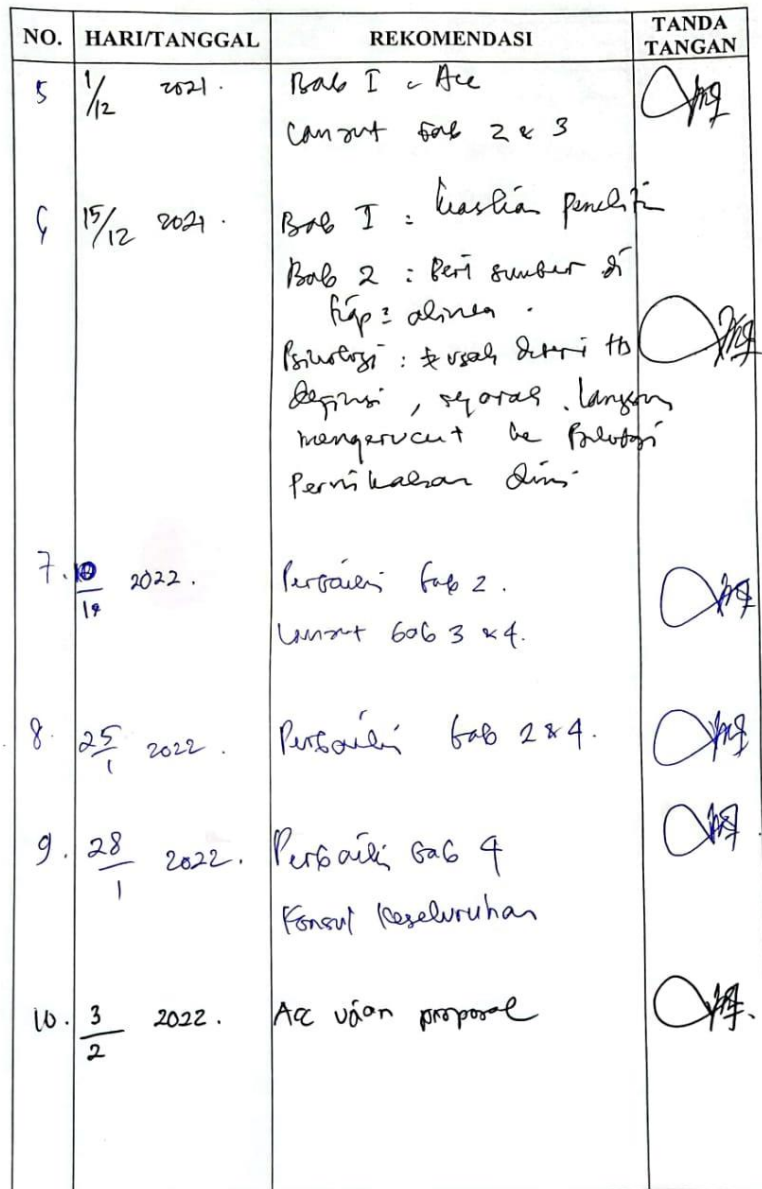 NO. HARI/TANGGAL REKOMENDASI TANDA TANGAN
5 1/12 2021. Bab I : Acc
Lanjut bab 2 & 3
6 15/12 2021. Bab I : keaslian peneliti
Bab 2 : Beri sumber di
tiap² alinea.
Psikologi : usah diberi ttg
definisi, sejarah. langsung
mengerucut ke Psikologi
Pernikahan dini
7. 2022. Perbaiki bab 2.
Lanjut bab 3 & 4.
8. 25/1 2022. Perbaiki bab 2&4.
9. 28/1 2022. Perbaiki bab 4
Konsul Keseluruhan
10. 3/2 2022. Acc ujian proposal